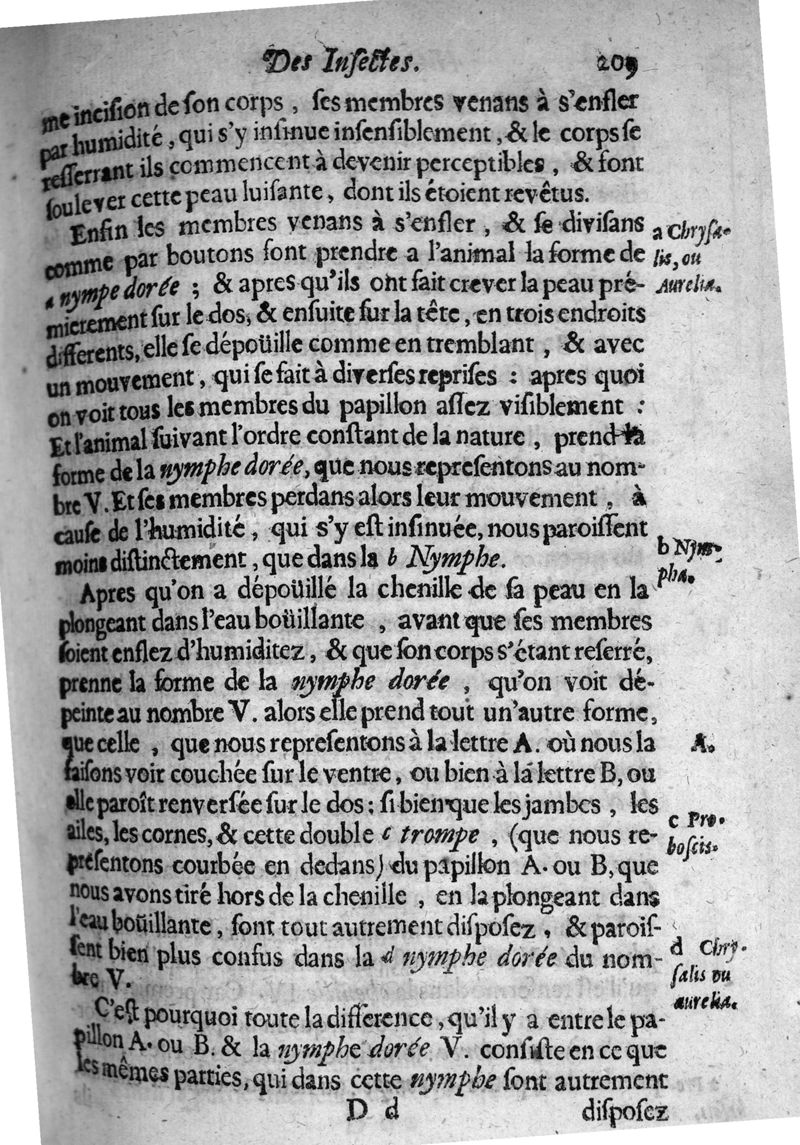 Des Inſectes. 209
me inciſion de ſon corps, ſes membres venans à s'enfler
par humidité, qui s'y inſinue inſenſiblement, & le corps ſe
reſſerrant ils commencent à devenir perceptibles, & font
ſoulever cette peau luiſante, dont ils étoient revêtus.
Enfin les membres venans à s'enfler, & ſe diviſans
comme par boutons font prendre a l'animal la forme de
a nympe dorée ; & apres qu'ils ont fait crever la peau pré-
mierement ſur le dos, & enſuite ſur la tête, en trois endroits
differents, elle ſe dépoüille comme en tremblant, & avec
un mouvement, qui ſe fait à diverſes repriſes : apres quoi
on voit tous les membres du papillon aſſez viſiblement :
Et l'animal ſuivant l'ordre conſtant de la nature, prend la
forme de la nymphe dorée, que nous repreſentons au nom-
bre V. Et ſes membres perdans alors leur mouvement, à
cauſe de l'humidité, qui s'y eſt inſinuée, nous paroiſſent
moins diſtinctement, que dans la b Nymphe.
Apres qu'on a dépoüillé la chenille de ſa peau en la
plongeant dans l'eau boüillante, avant que ſes membres
ſoient enflez d'humiditez, & que ſon corps s'étant reſerré,
prenne la forme de la nymphe dorée, qu'on voit dé-
peinte au nombre V. alors elle prend tout un'autre forme,
que celle, que nous repreſentons à la lettre A. où nous la
faiſons voir couchée ſur le ventre, ou bien à la lettre B, ou
elle paroît renverſée ſur le dos ; ſi bien que les jambes, les
ailes, les cornes, & cette double c trompe, (que nous re-
préſentons courbée en dedans) du papillon A. ou B, que
nous avons tiré hors de la chenille, en la plongeant dans
l'eau boüillante, ſont tout autrement diſpoſez, & paroiſ-
ſent bien plus confus dans la d nymphe dorée du nom-
bre V.
C'eſt pourquoi toute la difference, qu'il y a entre le pa-
pillon A. ou B. & la nymphe dorée V. conſiſte en ce que
les mêmes parties, qui dans cette nymphe ſont autrement
D d diſpoſez
a Chryſa-
lis, ou
Aureliæ.
b Nym-
pha.
A.
c Pro-
boſcis.
d Chry-
ſalis ou
aurelia.